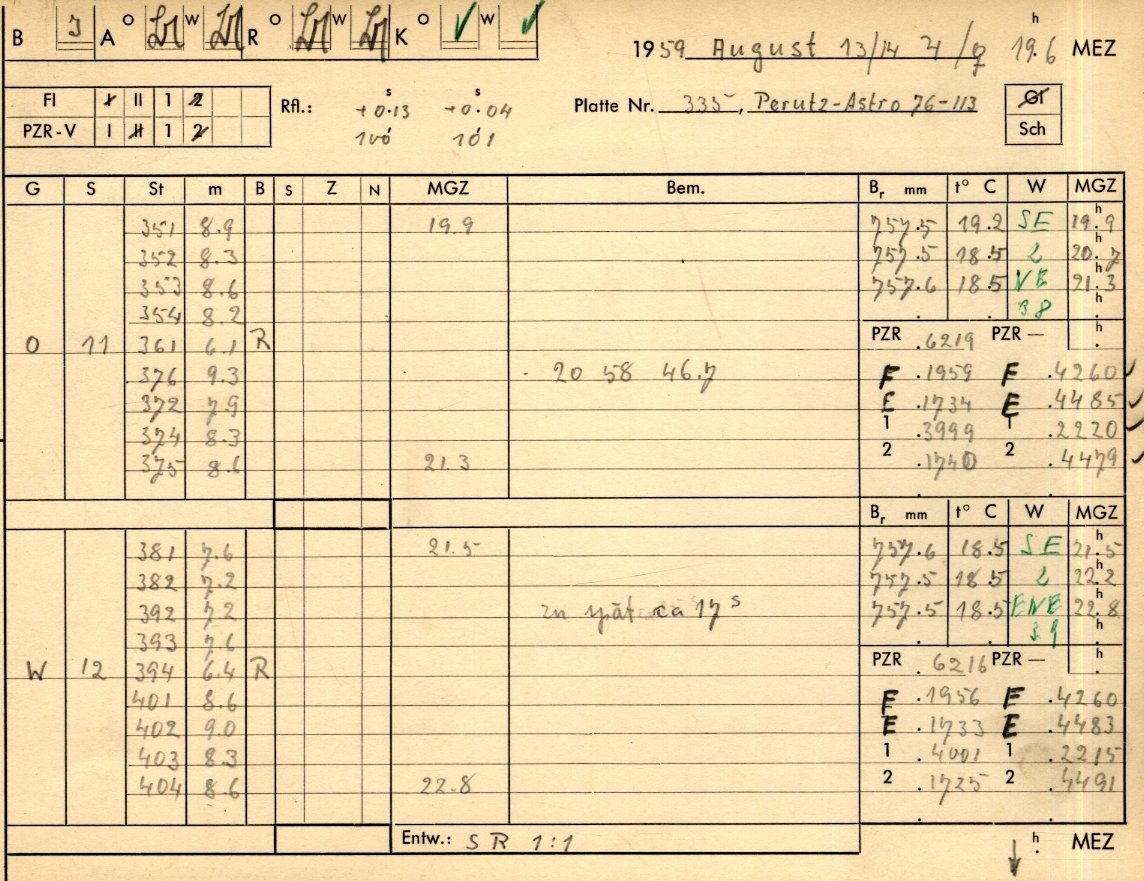 B J A O W R O W K O ✓ W ✓
1959 August 13/14 19.6 h MEZ
FI I II 1 2
PZR-V I II 1 2
Rfl.: +0.13 s +0.04 s
106 101
Platte Nr. 335, Perutz-Astro 76-113
GI
Sch
G S St m B S Z N MGZ Bem. Br mm t° C W MGZ
351 8.9 19.9 757.5 19.2 SE 19.9 h
352 8.3 757.5 18.5 2 20.7 h
353 8.6 757.6 18.5 21.3 h
354 8.2 38 h
O 11 361 6.1 R PZR .6219 PZR — h
376 9.3 20 58 46.7 F .1959 F .4260 ✓
372 7.9 E .1734 E .4485 ✓
374 8.3 1 .3999 1 .2220 ✓
375 8.6 21.3 2 .1740 2 .4479 ✓
Br mm t° C W MGZ
381 7.6 21.5 757.6 18.5 SE 21.5 h
382 7.2 757.5 18.5 2 22.2
392 7.2 zu spät ca 17 s 757.5 18.5 ENE 22.8
393 7.6 39 h
W 12 394 6.4 R PZR .6216 PZR — h
401 8.6 F .1956 F .4260
402 9.0 E .1733 E .4483
403 8.3 1 .4001 1 .2215
404 8.6 22.8 2 .1725 2 .4491
Entw.: SR 1:1 h MEZ